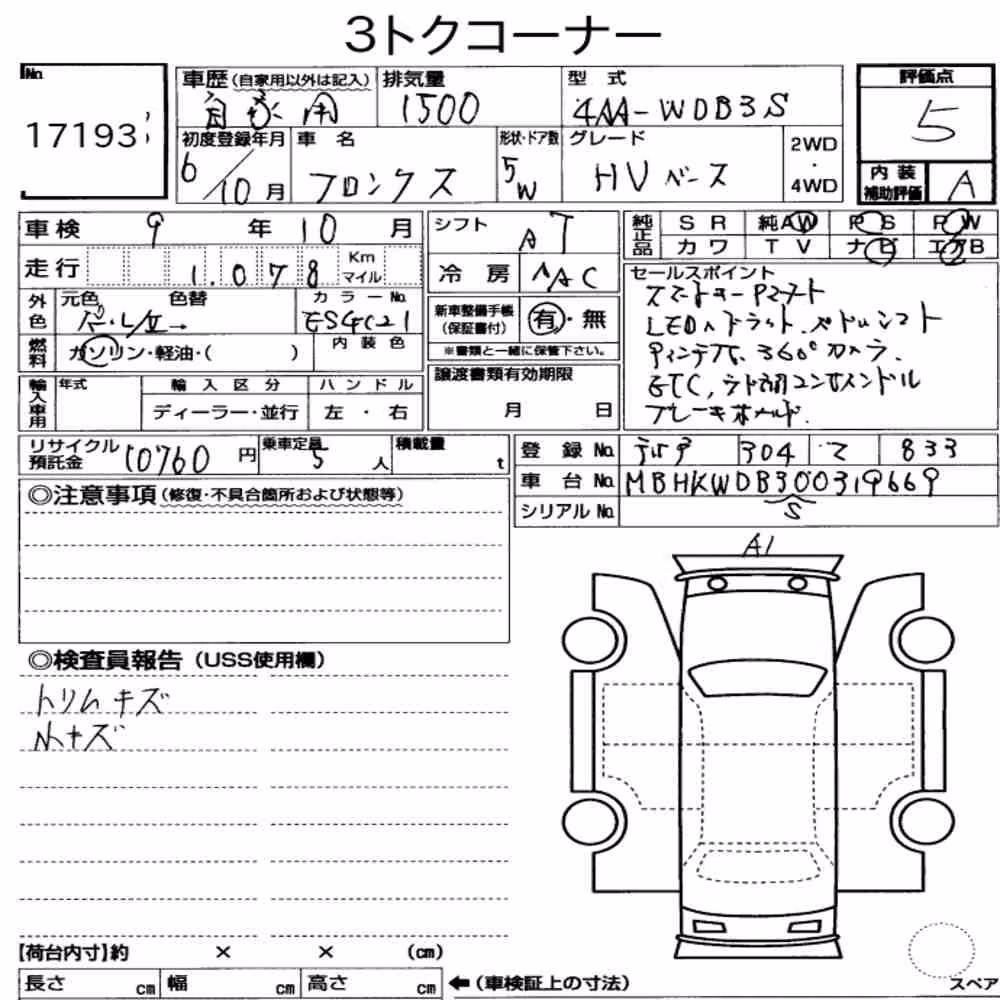 3トクコーナー
No. 17193
車歴(自家用以外は記入) 自家用
排気量 1500
型式 4AA-WDB3S
評価点 5
初度登録年月 6/10月
車名 フロンクス
形状・ドア数 5 W
グレード HVベース
2WD・4WD
内装補助評価 A
車検 9年10月
シフト AT
純正品 SR 純AW PS PW
カワ TV ナビ エアB
走行 1.078 Km マイル
冷房 AAC
セールスポイント
外色 元色 色替 カラーNo.
ES4C21
新車整備手帳(保証書付) 有・無
※書類と一緒に保管下さい。
LEDヘッドライト、パドルシフト
燃料 ガソリン・軽油・( ) 内装色
360°カメラ、
譲渡書類有効期限
月 日
ETC、
輸入車用 年式 輸入区分 ハンドル
ディーラー・並行 左・右
リサイクル預託金 10760円
乗車定員 5人
積載量 t
登録No. 304 833
車台No. MBHKWDB300319669
S
シリアルNo.
◎注意事項(修復・不具合箇所および状態等)
A1
◎検査員報告(USS使用欄)
トリムキズ
小キズ
【荷台内寸】約 × × (cm)
長さ cm 幅 cm 高さ cm ←(車検証上の寸法)
スペア